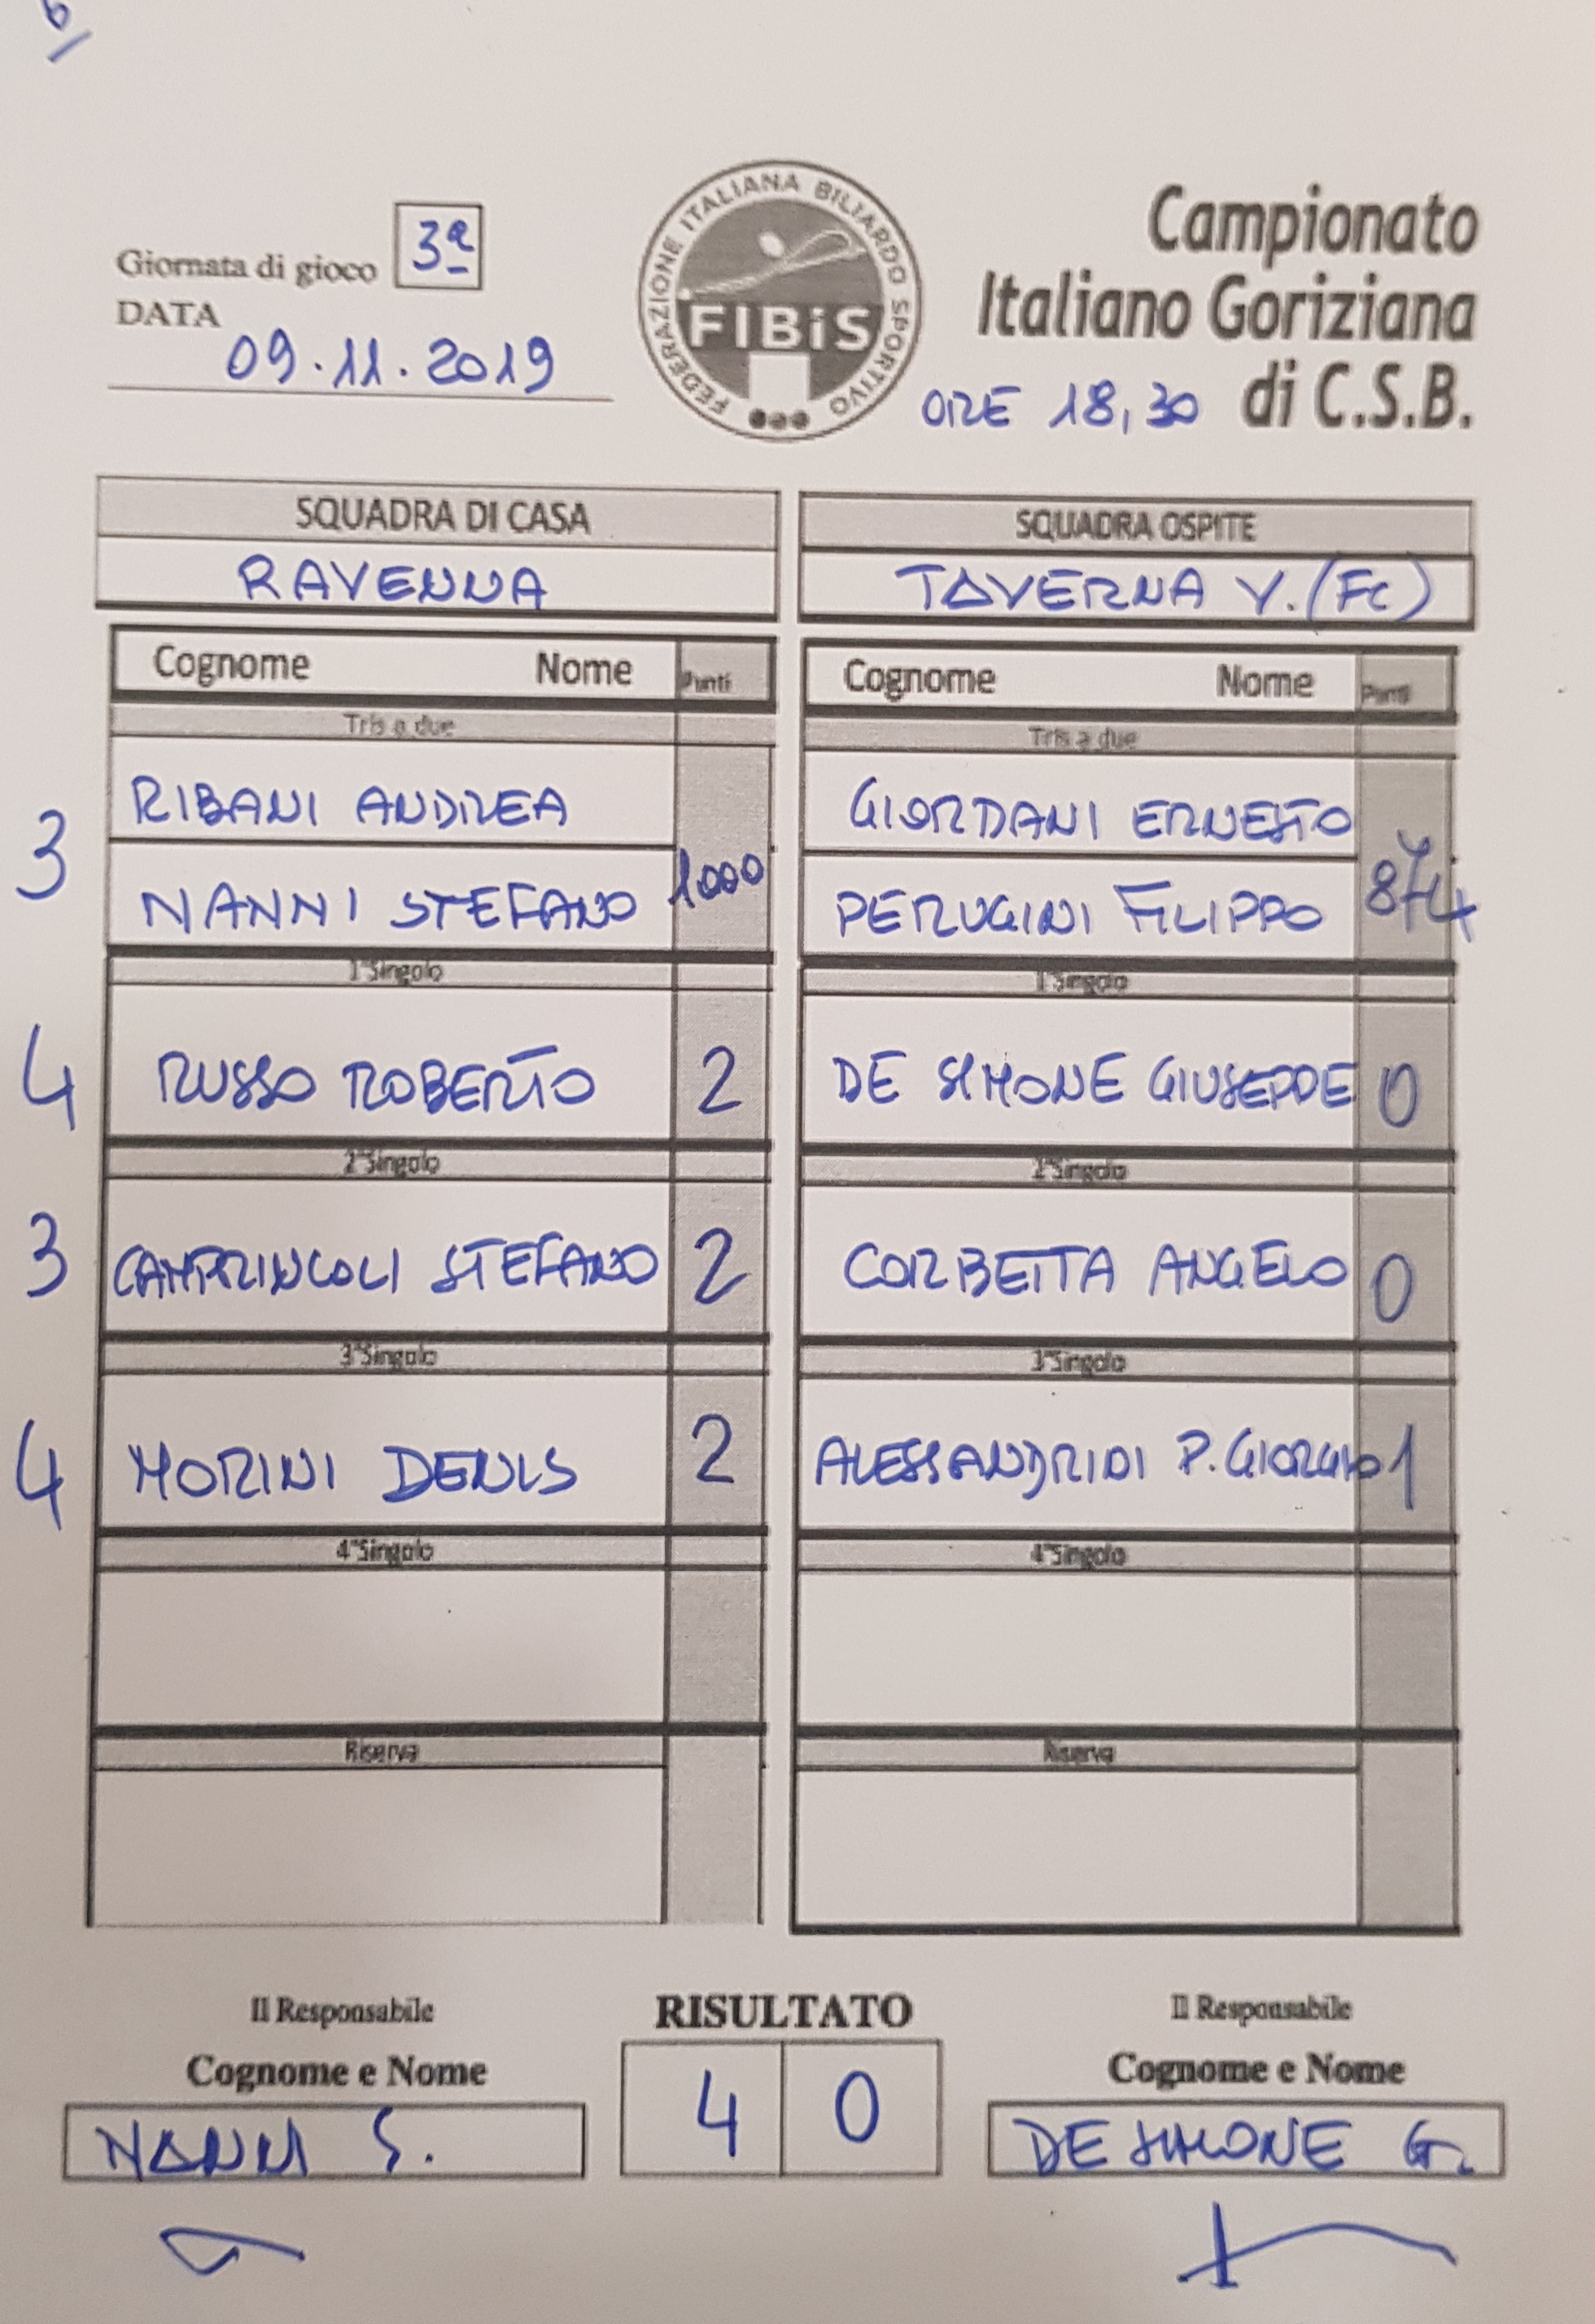 Giornata di gioco 3ª
DATA
09.11.2019
FEDERAZIONE ITALIANA BILIARDO SPORTIVO
FIBiS
Campionato
Italiano Goriziana
di C.S.B.
ORE 18,30
SQUADRA DI CASA
RAVENNA
Cognome Nome Punti
Tris a due
3
RIBANI ANDREA
NANNI STEFANO
1000
1°Singolo
4 RUSSO ROBERTO 2
2°Singolo
3 CAMPRINCOLI STEFANO 2
3°Singolo
4 MORINI DENIS 2
4°Singolo
Riserva
SQUADRA OSPITE
TAVERNA V. (FC)
Cognome Nome Punti
Tris a due
GIORDANI ERNESTO
PERUGINI FILIPPO
874
1°Singolo
DE SIMONE GIUSEPPE 0
2°Singolo
CORBETTA ANGELO 0
3°Singolo
ALESSANDRIDI P.GIORGIO 1
4°Singolo
Riserva
Il Responsabile
Cognome e Nome
NANNI S.
RISULTATO
4 0
Il Responsabile
Cognome e Nome
DE SIMONE G.